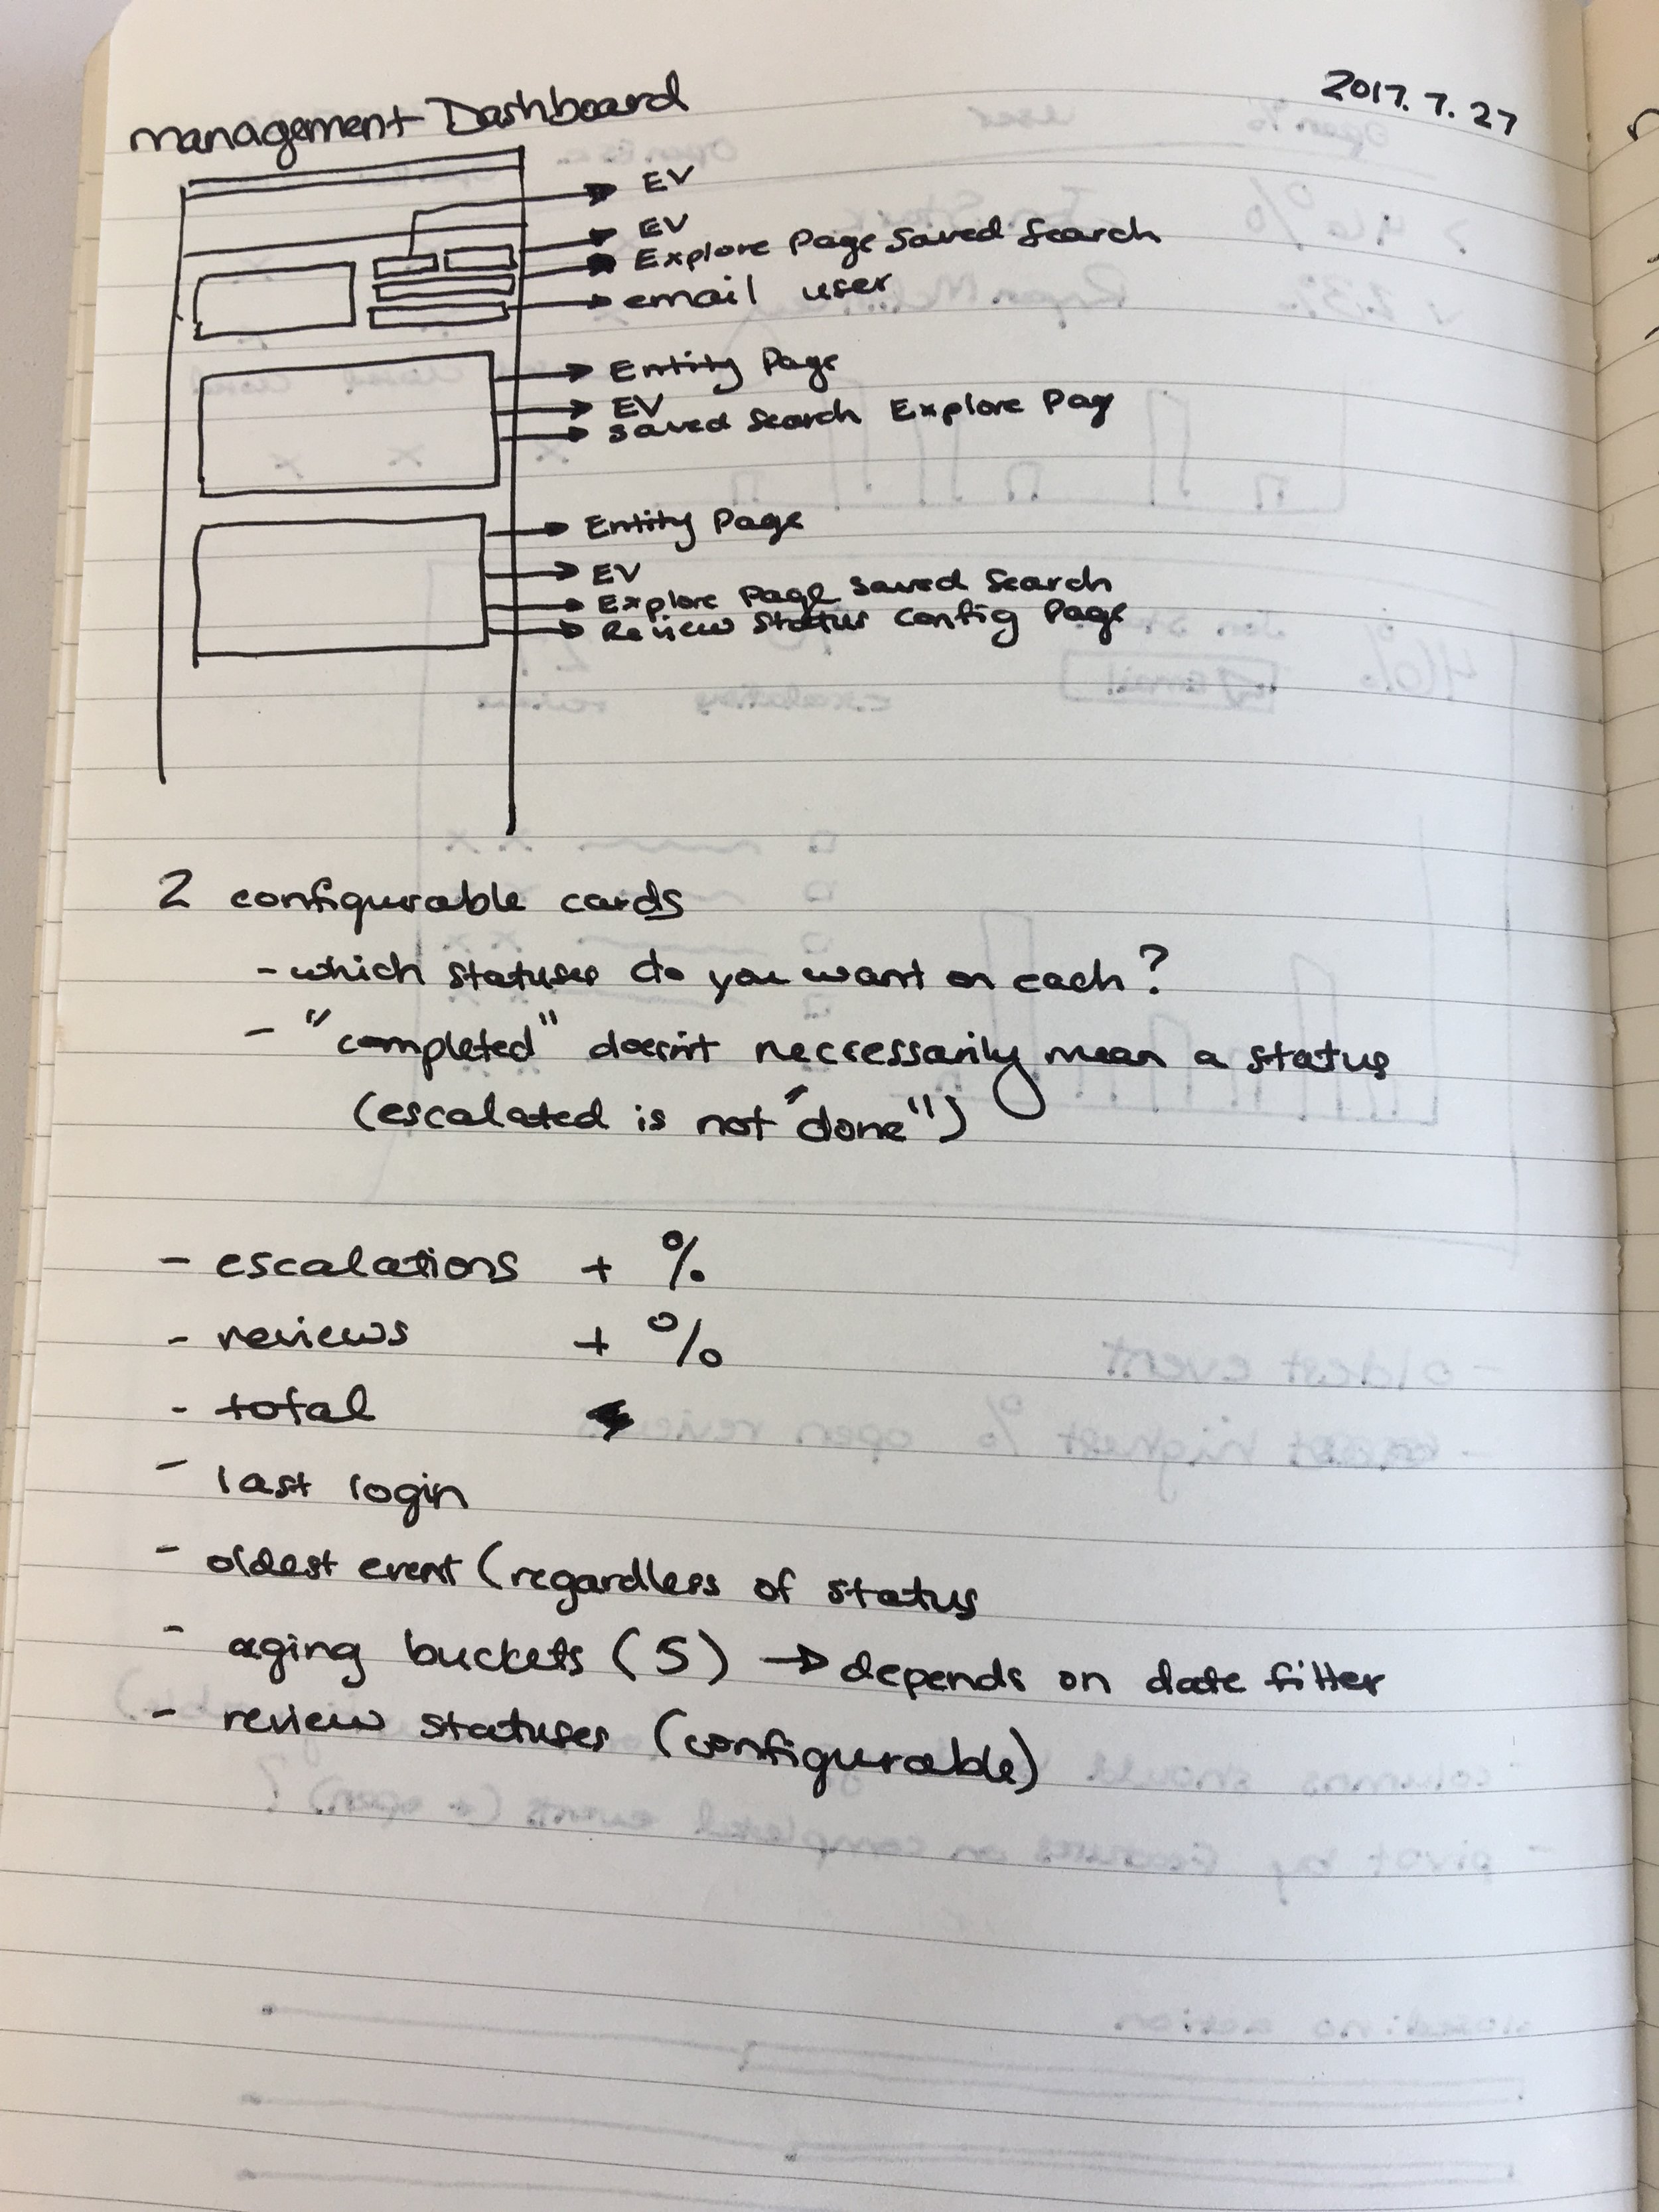 management Dashboard
2017.7.27
EV
EV
Explore Page Saved Search
email user
Entity Page
EV
saved Search Explore Pag
Entity Page
EV
Explore Page saved Search
Review Status Config Page
2 configurable cards
- which statuses do you want on each?
- "completed" doesn't neccessarily mean a status
(escalated is not "done")
- escalations + %
- reviews + %
- total
- last login
- oldest event (regardless of status
- aging buckets (5) → depends on date filter
- review statuses (configurable)